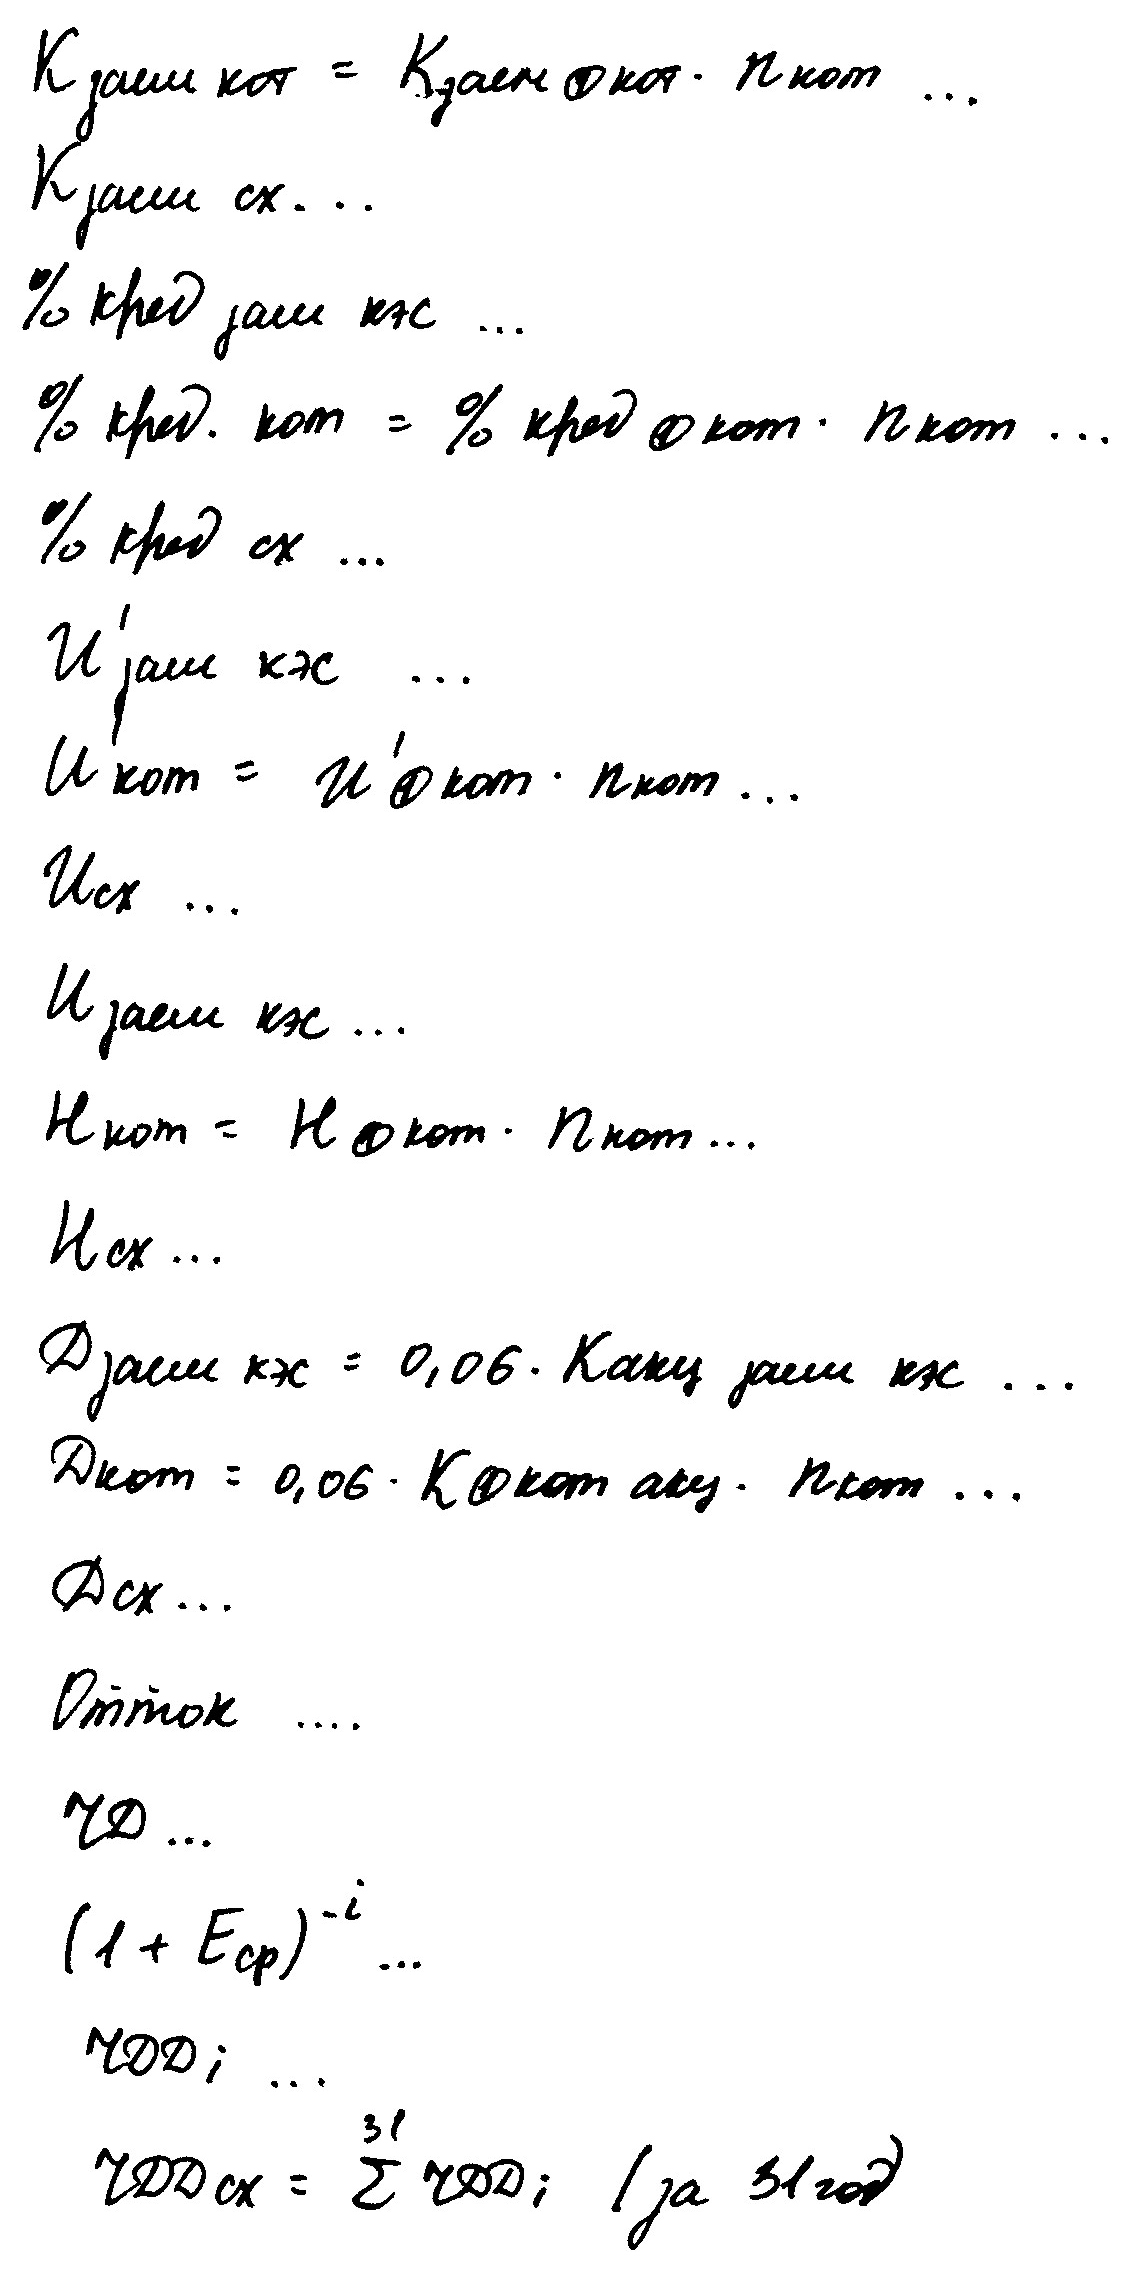 К заем кот = К заем ф кот · n кот ...
К заем сх ...
% кред заем кэс ...
% кред. кот = % кред ф кот · n кот ...
% кред сх ...
И' заем кэс ...
И кот = И' ф кот · n кот ...
И сх ...
И заем кэс ...
Н кот = Н ф кот · n кот ...
Н сх ...
Д заем кэс = 0,06 · К акц заем кэс ...
Д кот = 0,06 · К ф кот акц · n кот ...
Д сх ...
Отток ....
ЧД ...
(1 + Eср)^-i ...
ЧДДi ...
ЧДД сх = 31 Σ ЧДДi (за 31 год)